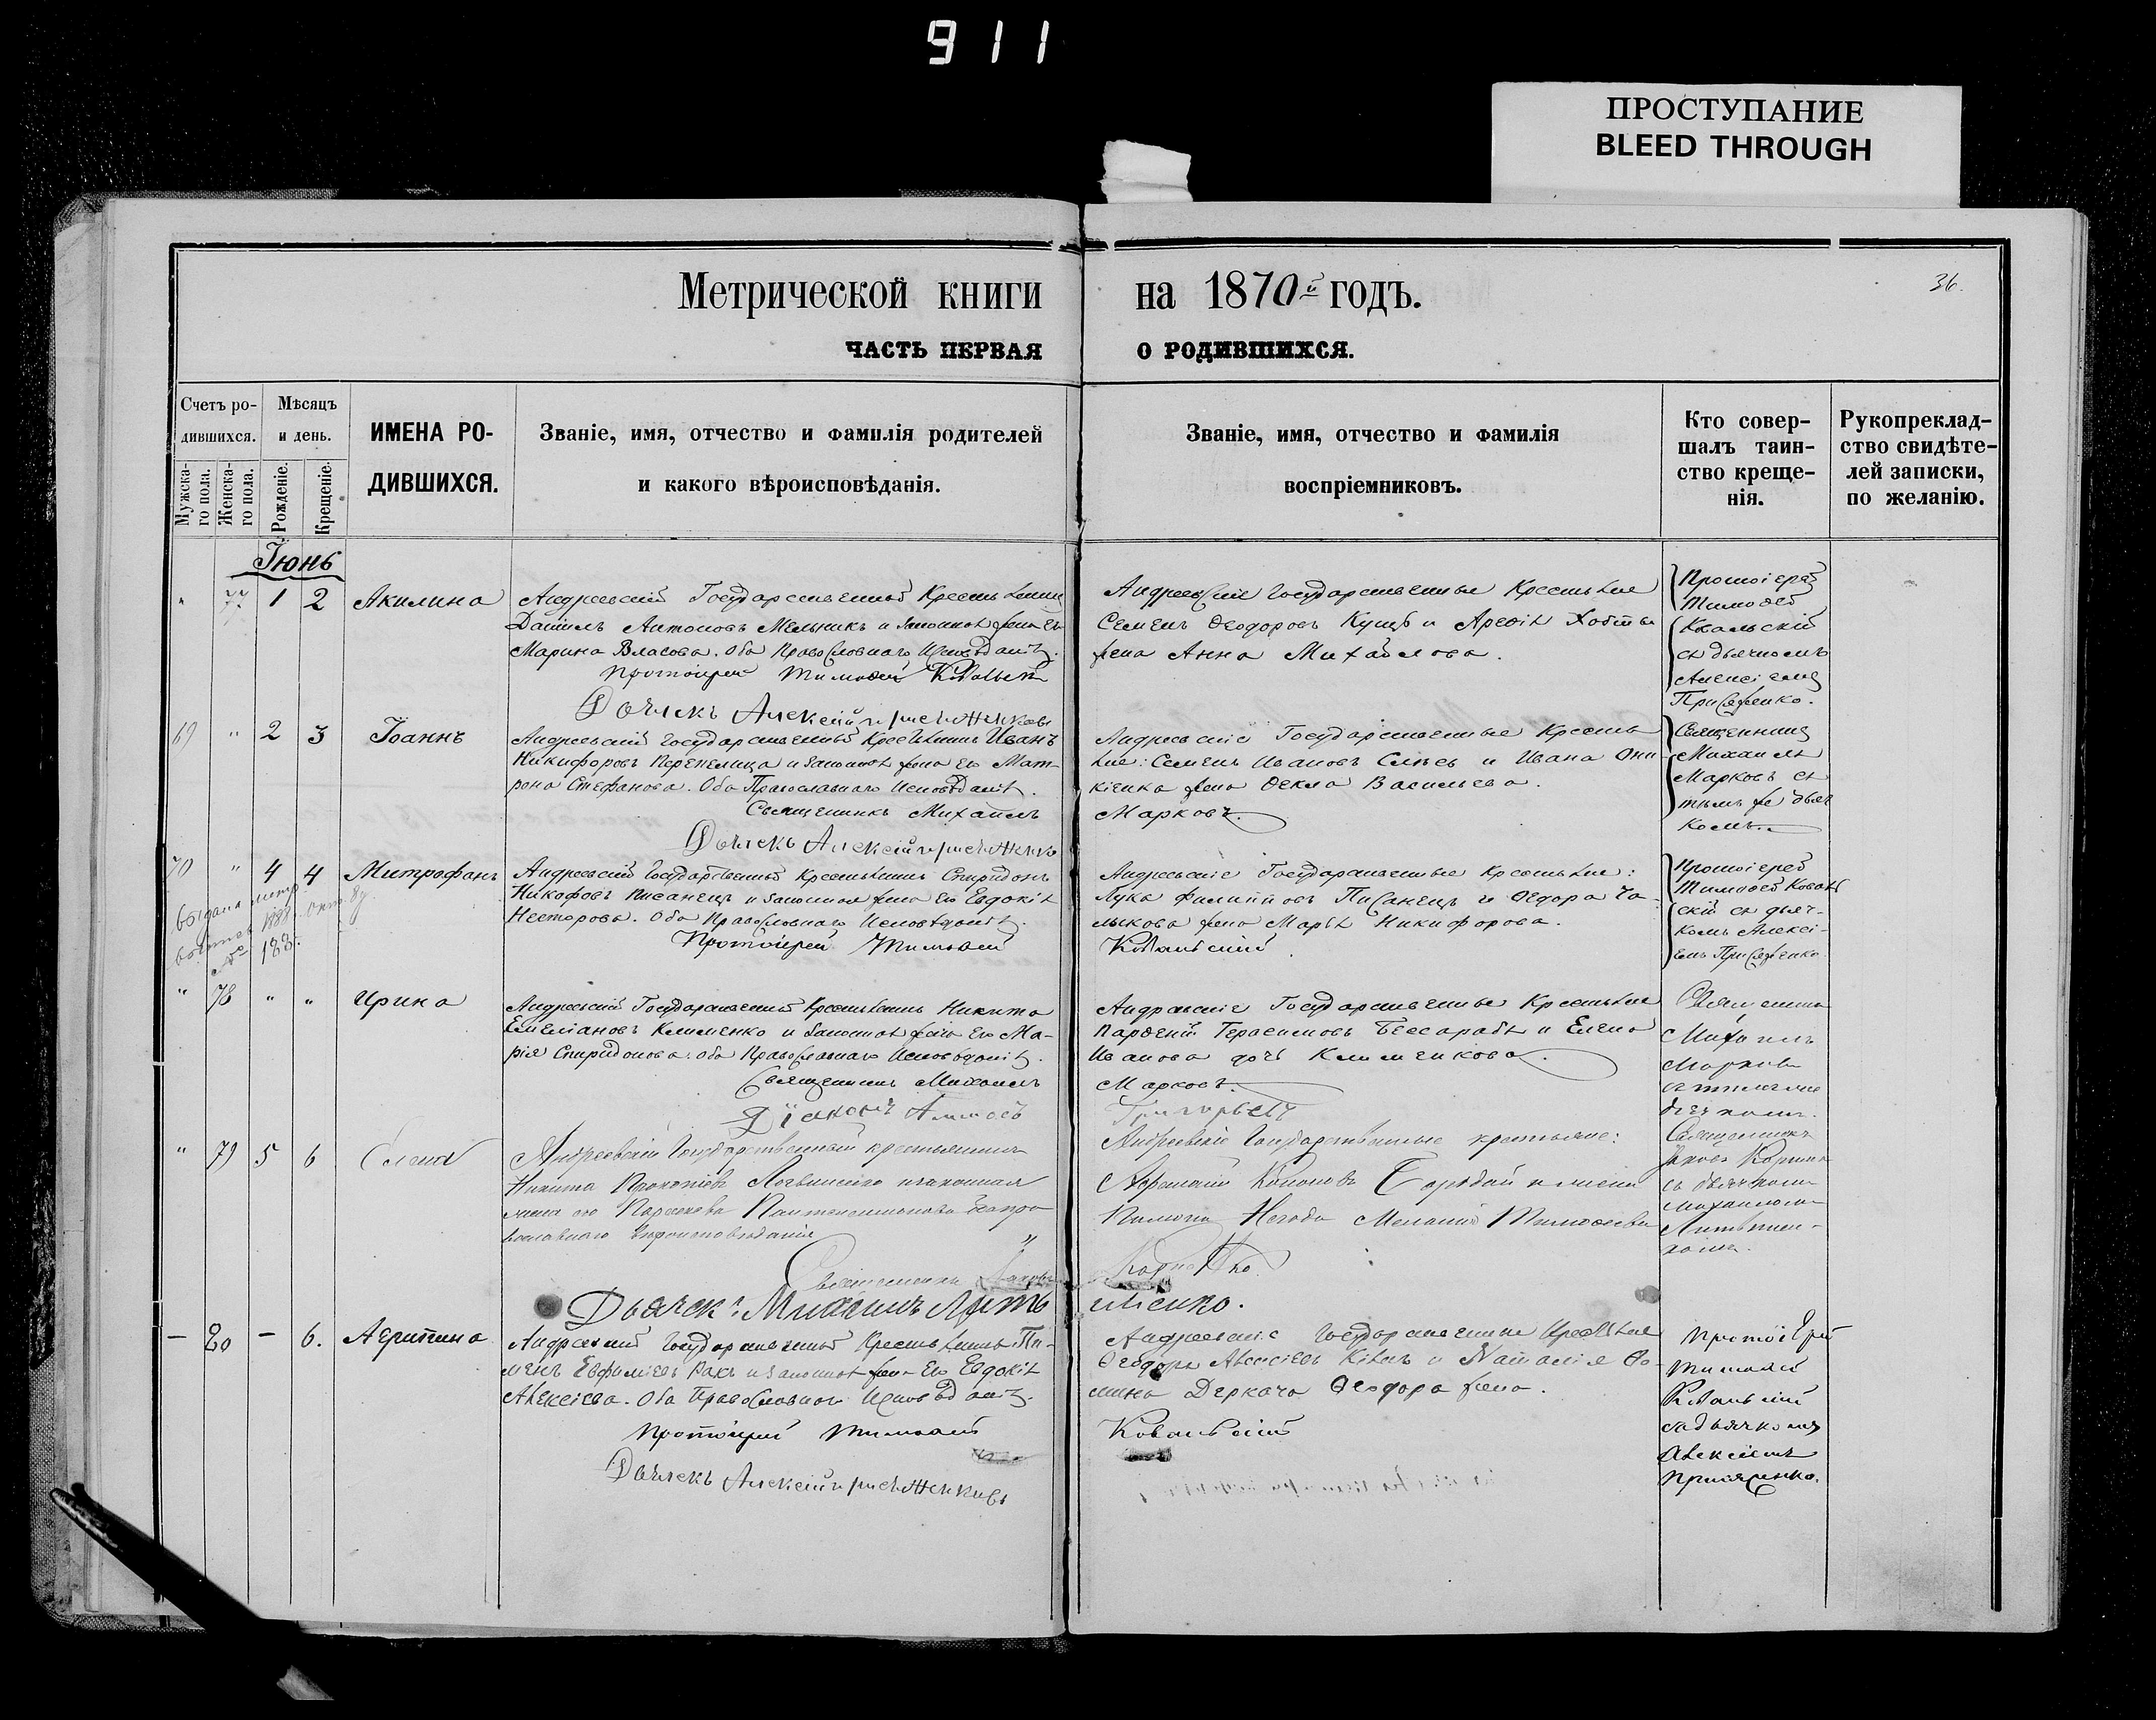 911
ПРОСТУПАНИЕ
BLEED THROUGH
Метрической книги на 1870й годъ.
36.
ЧАСТЬ ПЕРВАЯ О РОДИВШИХСЯ.
Счетъ ро-
дившихся.
Мужска-
го пола.
Женска-
го пола.
Мѣсяцъ
и день.
Рожденіе.
Крещеніе.
ИМЕНА РО-
ДИВШИХСЯ.
Званіе, имя, отчество и фамилія родителей
и какого вѣроисповѣданія.
Званіе, имя, отчество и фамилія
воспріемниковъ.
Кто совер-
шалъ таин-
ство креще-
нія.
Рукопреклад-
ство свидѣте-
лей записки,
по желанію.
Іюнь
" 77 1 2 Акилина
Андреевскій Государственный Крестьянинъ
Даніилъ Антоновъ Мельникъ и законная жена его
Марина Власова. Оба Православнаго Исповѣданія.
Протоіерей Тимофей Ковальскій
Дьячекъ Алексій
Андреевскіе Государственные Крестьяне
Семенъ Ѳеодоровъ Куцъ и
жена Анна Михайлова.
Протоіерей
Тимоѳей
Ковальскій
съ дьячкомъ
Алексіемъ
69 " 2 3 Іоаннъ
Андреевскій Государственный Крестьянинъ Иванъ
Никифоровъ Перепелица и законная жена его Мат-
рона Стефанова. Оба Православнаго Исповѣданія.
Священникъ Михаилъ
Дьячекъ Алексій
Андреевскіе Государственные Крестья-
не: Семенъ Ивановъ и Ивана Они-
кіенка жена Ѳекла Васильева.
Марковъ.
Священникъ
Михаилъ
Марковъ съ
тѣмъ же дьяч-
комъ.
70 " 4 4 Митрофанъ
выдана метр.
133.
Андреевскій Государственный Крестьянинъ Спиридонъ
Никофовъ Писанецъ и законная жена его Евдокія
Несторова. Оба Православнаго Исповѣданія.
Протоіерей Тимофей
Андреевскіе Государственные Крестьяне:
Лука Филиповъ Писанецъ и Ѳедора Ча-
лыкова жена Марѳа Никифорова.
Ковальскій.
Протоіерей
Тимоѳей Коваль-
скій съ дьяч-
комъ Алексі-
емъ
" 78 " " Ирина
Андреевскій Государственный Крестьянинъ Никита
Емеліановъ Клименко и законная жена его Ма-
рія Спиридонова. Оба Православнаго Исповѣданія.
Священникъ Михаилъ
Діаконъ Аммосъ
Андреевскіе Государственные Крестьяне
Парѳеній Герасимовъ Бессарабъ и Елена
Иванова дочь Клименкова.
Марковъ.
Григорьевъ
Священникъ
Михаилъ
Марковъ
съ тѣмъ же
дьячкомъ.
" 79 5 6 Елена
Андреевскій Государственный крестьянинъ
Никита Прокопіевъ и законная
жена его Параскева Пантелеимонова оба пра-
вославнаго вѣроисповѣданія
Священникъ
Дьячекъ: Михаилъ
Андреевскіе Государственные крестьяне:
Афанасій Кононовъ и жена
Негоды Меланія Тимоѳеева
Священникъ
съ дьячкомъ
Михаиломъ
– 80 – 6. Агрипина
Андреевскій Государственный Крестьянинъ Пи-
менъ Евфиміевъ Ракъ и законная жена его Евдокія
Алексіева. Оба Православнаго Исповѣданія.
Протоіерей Тимоѳей
Дьячекъ Алексій
Андреевскіе Государственные Крестьяне
Ѳеодоръ Алексіевъ и Наталія Ѳо-
мина Деркача Ѳеодора жена.
Ковальскій
Протоіерей
Тимоѳей
Ковальскій
съ дьячкомъ
Алексіемъ